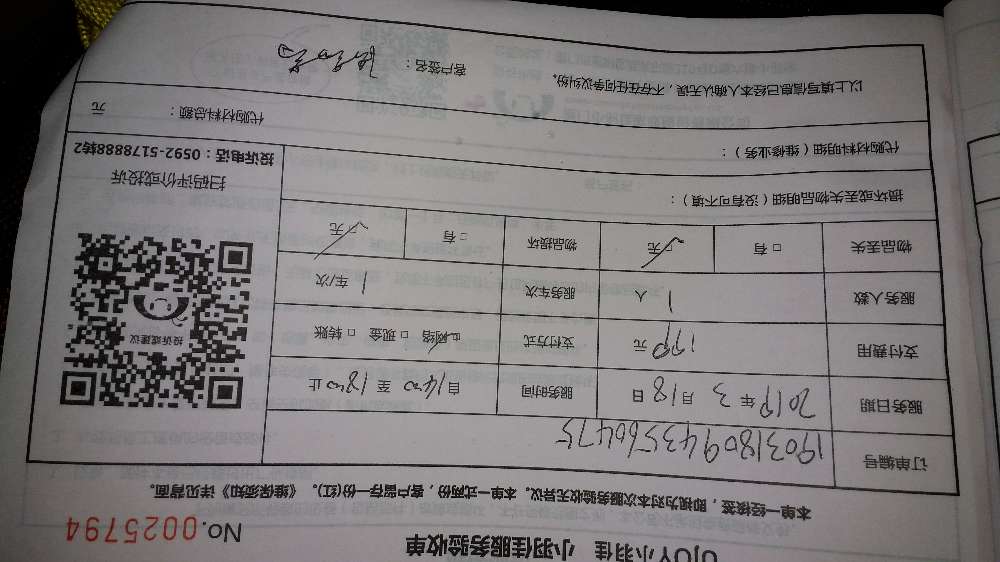 UJOY小羽佳 小羽佳服务验收单
No.0025794
本单一经核签，即视为对本次服务验收无异议。本单一式两份，客户留存一份(红)。《维保须知》详见背面。
订单编号 190318094356047 5
服务日期 2019年3月18日 服务时间 自14:00至18:00止
支付费用 199元 支付方式 ☑网络 □现金 □转账
服务人数 1人 服务车次 1车/次
物品丢失 □有 ☑无 物品损坏 □有 ☑无
投诉或建议
扫码评价或投诉
投诉电话：0592-5178888转2
损坏或丢失物品明细（没有可不填）：
代购材料明细（维修业务）：
代购材料总额： 元
以上填写信息已经本人确认无误，不存在任何争议纠纷。 客户签名：